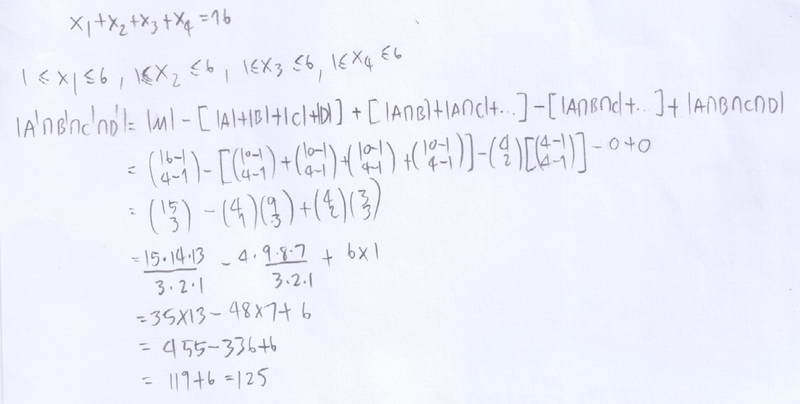 x₁+x₂+x₃+x₄=16
1≤x₁≤6, 1≤x₂≤6, 1≤x₃≤6, 1≤x₄≤6
|A'∩B'∩C'∩D'|= |M| - [|A|+|B|+|C|+|D|] + [|A∩B|+|A∩C|+...] - [|A∩B∩C|+...] + |A∩B∩C∩D|
= (16-1 4-1) - [(10-1 4-1)+(10-1 4-1)+(10-1 4-1)+(10-1 4-1)] - (4 2)[(4-1 4-1)] - 0+0
= (15 3) - (4 1)(9 3)+(4 2)(3 3)
= 15·14·13/3·2·1 - 4·9·8·7/3·2·1 + 6×1
= 35×13 - 48×7+6
= 455-336+6
= 119+6=125